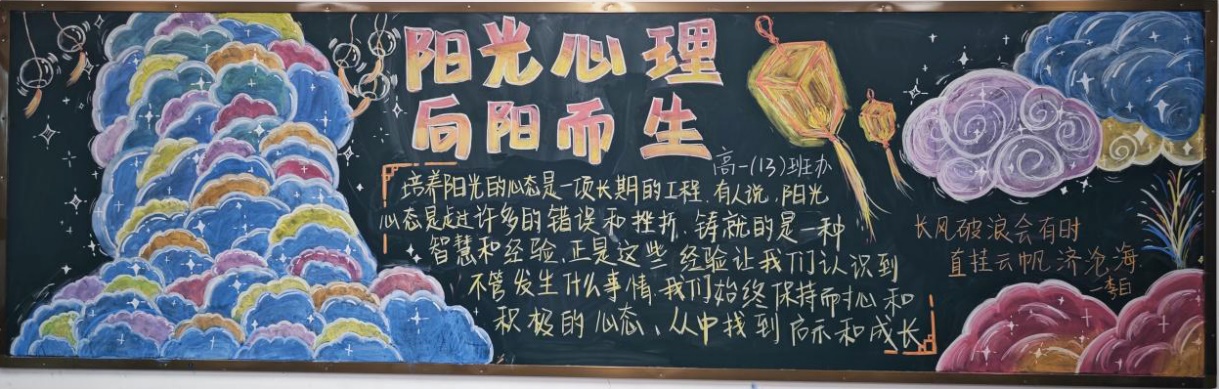 阳光心理
向阳而生
高一(13)班办
培养阳光的心态是一项长期的工程.有人说,阳光
心态是走过许多的错误和挫折.铸就的是一种
智慧和经验.正是这些经验让我们认识到
不管发生什么事情.我们始终保持耐心和
积极的心态、从中找到启示和成长
长风破浪会有时
直挂云帆济沧海
—李白